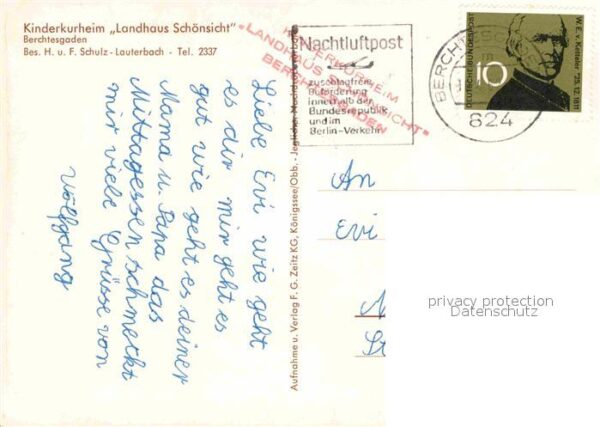 Kinderkurheim „Landhaus Schönsicht"
Berchtesgaden
Bes. H. u. F. Schulz-Lauterbach - Tel. 2337
Liebe Evi wie geht
es dir mir geht es
gut wie geht es deiner
Mama u. Papa das
Mittagessen schmeckt
mir viele Grüsse von
Wolfgang
Aufnahme u. Verlag F. G. Zeitz KG, Königssee/Obb. - Jeglicher Nachdruck
KINDERKURHEIM
„LANDHAUS SCHÖNSICHT"
BERCHTESGADEN
Nachtluftpost
zuschlagfreie
Beförderung
innerhalb der
Bundesrepublik
und im
Berlin-Verkehr
BERCHTESGADEN
824
10
DEUTSCHE BUNDESPOST
W. E. v. Ketteler *25. 12. 1811
An
Evi
privacy protection
Datenschutz